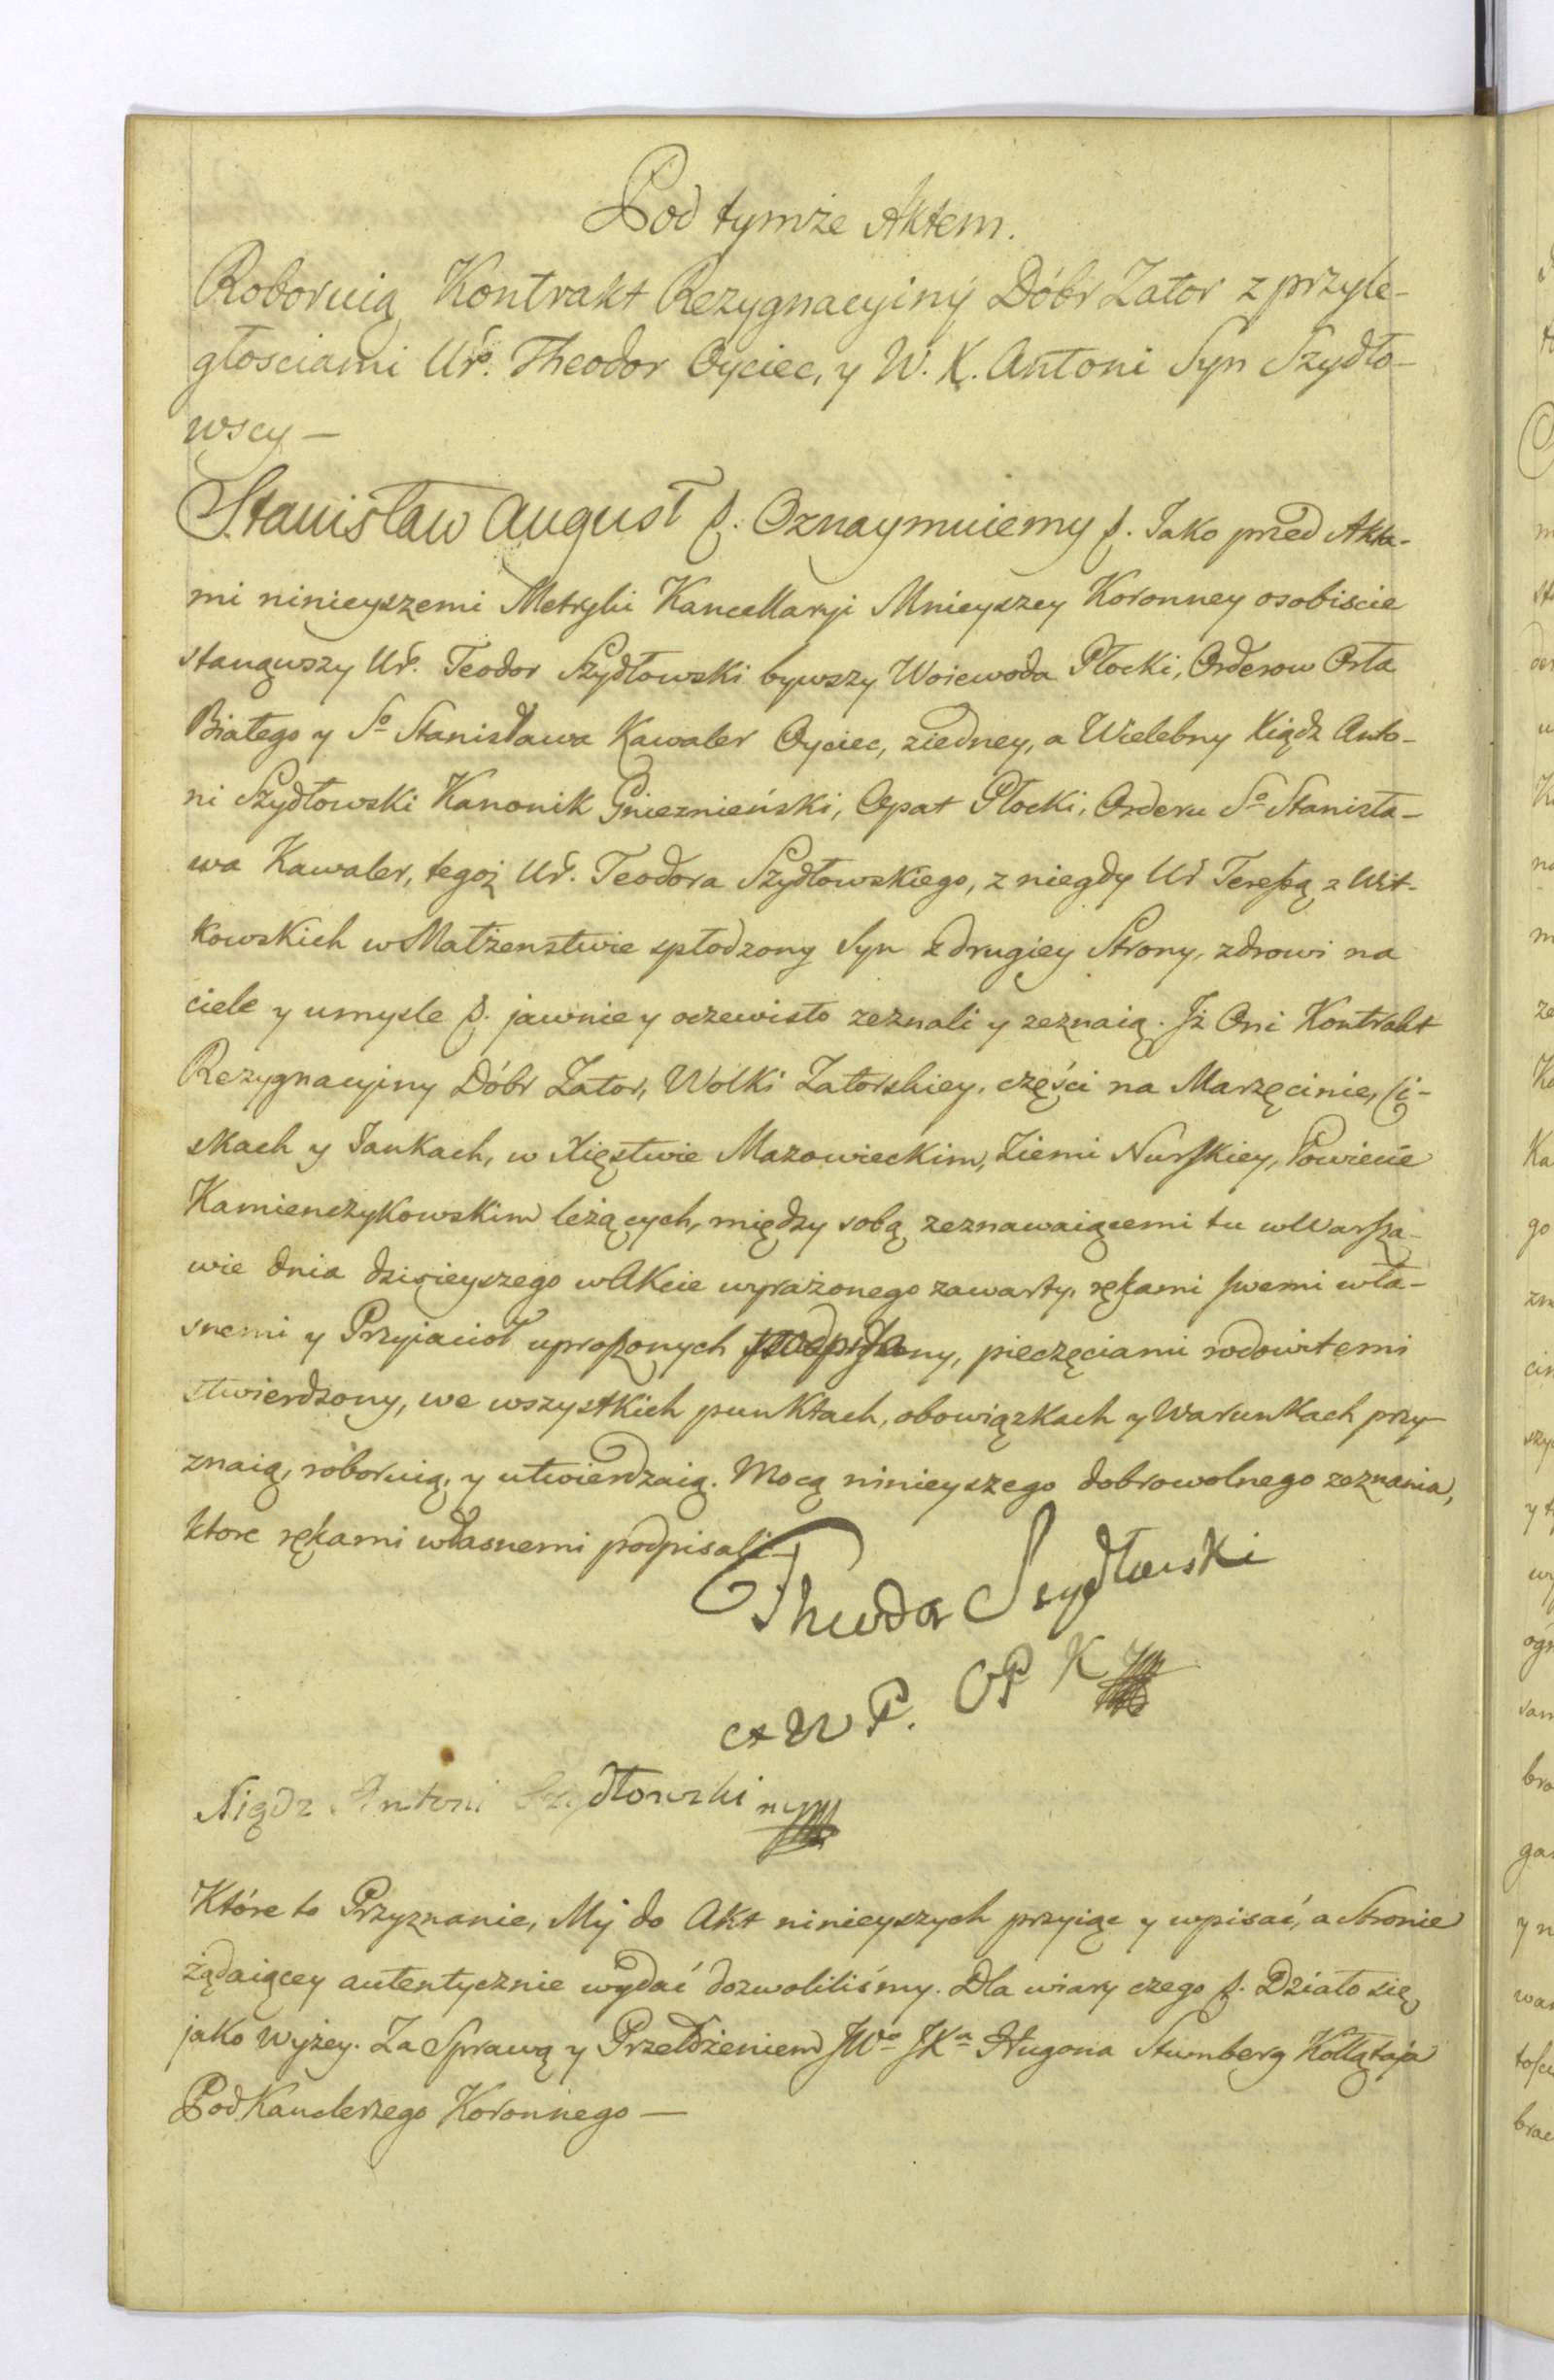 Pod tymże Aktem.
Roboruią Kontrakt Rezygnacyiny Dóbr Zator z przyle-
głosciami Ur. Theodor Oyciec, y W. X. Antoni Syn Szydło-
wscy —
Stanisław August p. Oznaymuiemy p. Jako przed Akta-
mi ninieyszemi Metryki Kancellaryi Mnieyszey Koronney osobiscie
stanąwszy Ur. Teodor Szydłowski bywszy Woiewoda Płocki, Orderow Orła
Białego y So Stanisława Kawaler Oyciec, ziedney, a Wielebny Xiądz Anto-
ni Szydłowski Kanonik Gnieznieński, Opat Płocki, Orderu So Stanisła-
wa Kawaler, tegoż Ur. Teodora Szydłowskiego, z niegdy Ur Teressą z Wit-
kowskich w Małżenstwie spłodzony Syn z drugiey Strony, zdrowi na
ciele y umysle p. jawnie y oczewisto zeznali y zeznaią. Iż Oni Kontrakt
Rezygnacyiny Dóbr Zator, Wolki Zatorskiey, części na Marzęcinie, Ci-
skach y Jankach, w Xięstwie Mazowieckim, Ziemi Nurskiey, Powiecie
Kamienczykowskim leżących, między sobą zeznawaiącemi tu w Warsza-
wie dnia dzisieyszego w Akcie wyrażonego zawarty, rękami swemi wła-
snemi y Przyiacioł uproszonych podpisany, pieczęciami rodowitemi
stwierdzony, we wszystkich punktach, obowiązkach y Warunkach przy-
znaią, roboruią, y utwierdzaią. Mocą ninieyszego dobrowolnego zeznania,
ktore rękami własnemi podpisali —
Theodor Szydłowski
W P. OP K
Xiądz Antoni Szydłowski
Które to Przyznanie, My do Akt ninieyszych przyiąc y wpisać, a Stronie
żądaiącey autentycznie wydać dozwoliliśmy. Dla wiary czego p. Działo się
jako wyżey. Za Sprawą y Przełożeniem JWo JXa Hugona Stumberg Kołłątaja
PodKanclerzego Koronnego —